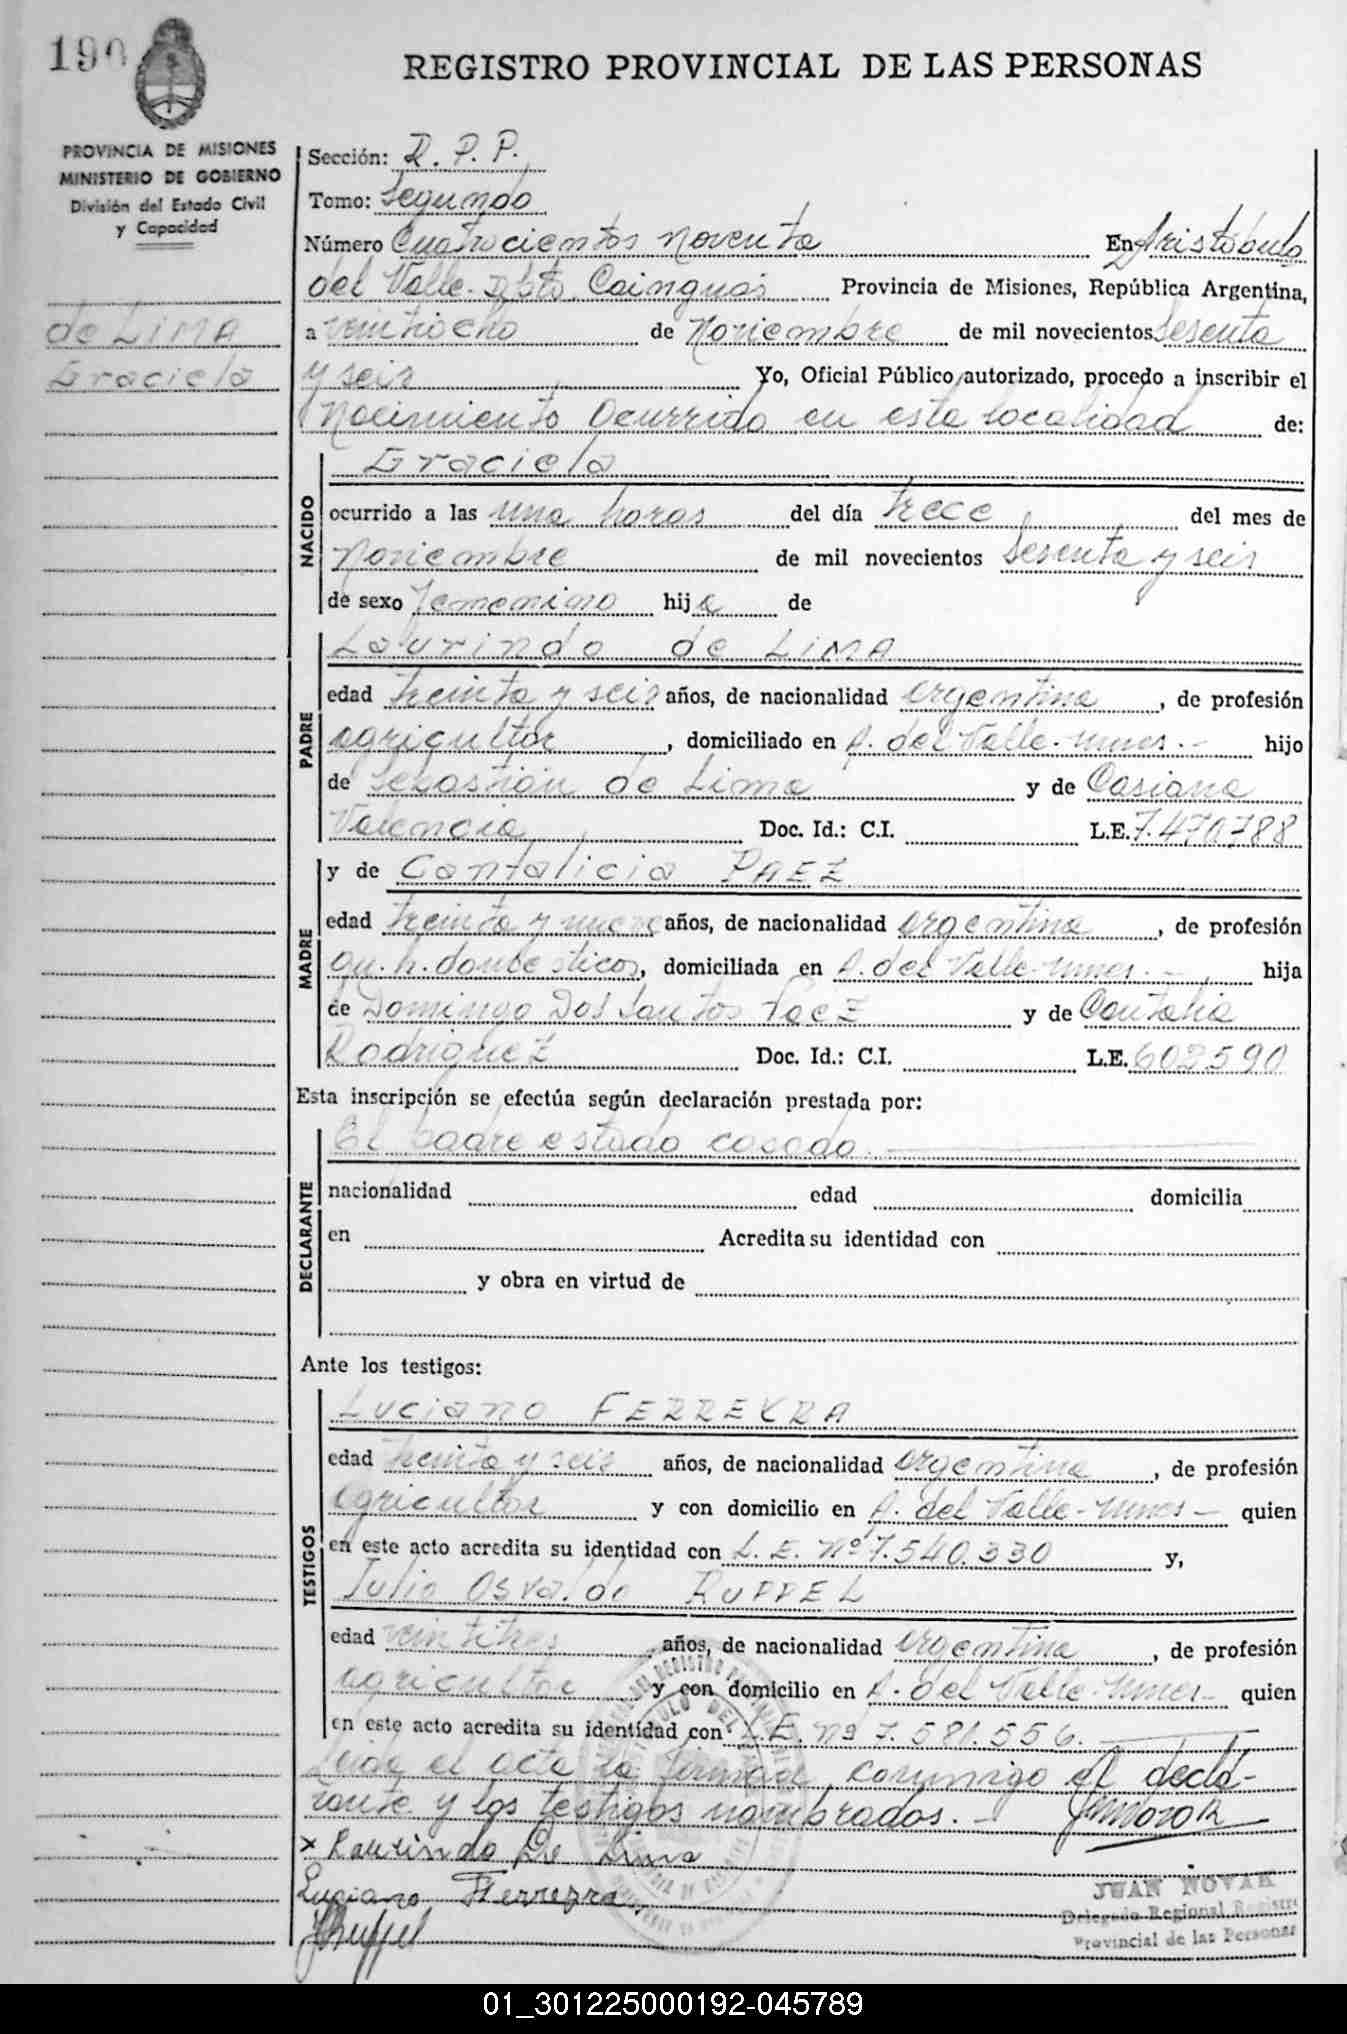 190
REGISTRO PROVINCIAL DE LAS PERSONAS
PROVINCIA DE MISIONES
MINISTERIO DE GOBIERNO
División del Estado Civil
y Capacidad
de LIMA
Graciela
Sección: R. P. P.
Tomo: Segundo
Número Cuatrocientos noventa En Aristóbulo
del Valle. Dpto. Cainguas Provincia de Misiones, República Argentina,
a veintiocho de Noviembre de mil novecientos Sesenta
y seis Yo, Oficial Público autorizado, procedo a inscribir el
Nacimiento Ocurrido en esta localidad de:
NACIDO
Graciela
ocurrido a las una horas del día trece del mes de
Noviembre de mil novecientos Sesenta y seis
de sexo femenino hija de
PADRE
Laurindo de LIMA
edad treinta y seis años, de nacionalidad argentina, de profesión
agricultor, domiciliado en A. del Valle. mnes. - hijo
de Sebastián de Lima y de Casiana
Valencia Doc. Id.: C.I. L.E. 7.470.788
MADRE
y de Cantalicia PAEZ
edad treinta y nueve años, de nacionalidad argentina, de profesión
qu. h. domésticos, domiciliada en A. del Valle mnes. - hija
de Domingo Dos Santos Paez y de Cantalia
Rodriguez Doc. Id.: C.I. L.E. 602590
Esta inscripción se efectúa según declaración prestada por:
DECLARANTE
El padre estado casado.
nacionalidad edad domicilia
en Acredita su identidad con
y obra en virtud de
Ante los testigos:
TESTIGOS
Luciano FERREYRA
edad treinta y seis años, de nacionalidad argentina, de profesión
agricultor y con domicilio en A. del Valle - mnes - quien
en este acto acredita su identidad con L. E. Nº 7.540.330 y,
Julio Osvaldo RUPPEL
edad veintitres años, de nacionalidad argentina, de profesión
agricultor y con domicilio en A. del Valle. mnes - quien
en este acto acredita su identidad con L.E. Nº 7.581.556.
Leida el acta la firman conmigo el decla-
rante y los testigos nombrados. -
x Laurindo De Lima
Luciano Ferreyra
JRuppel
JUAN NOVAK
Delegado Regional Registro
Provincial de las Personas
01_301225000192-045789